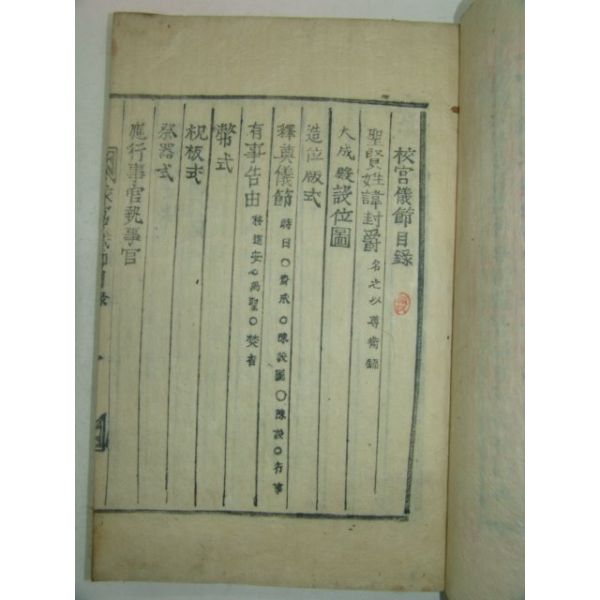 校宮儀節目錄
聖賢姓諱封爵 名之以尊衛錄
大成殿設位圖
造位版式
釋奠儀節 時日○齋戒○陳設圖○陳設○行事
有事告由 移還安○焚香
幣式
祝板式
祭器式
應行事官執事官
校宮儀節目錄